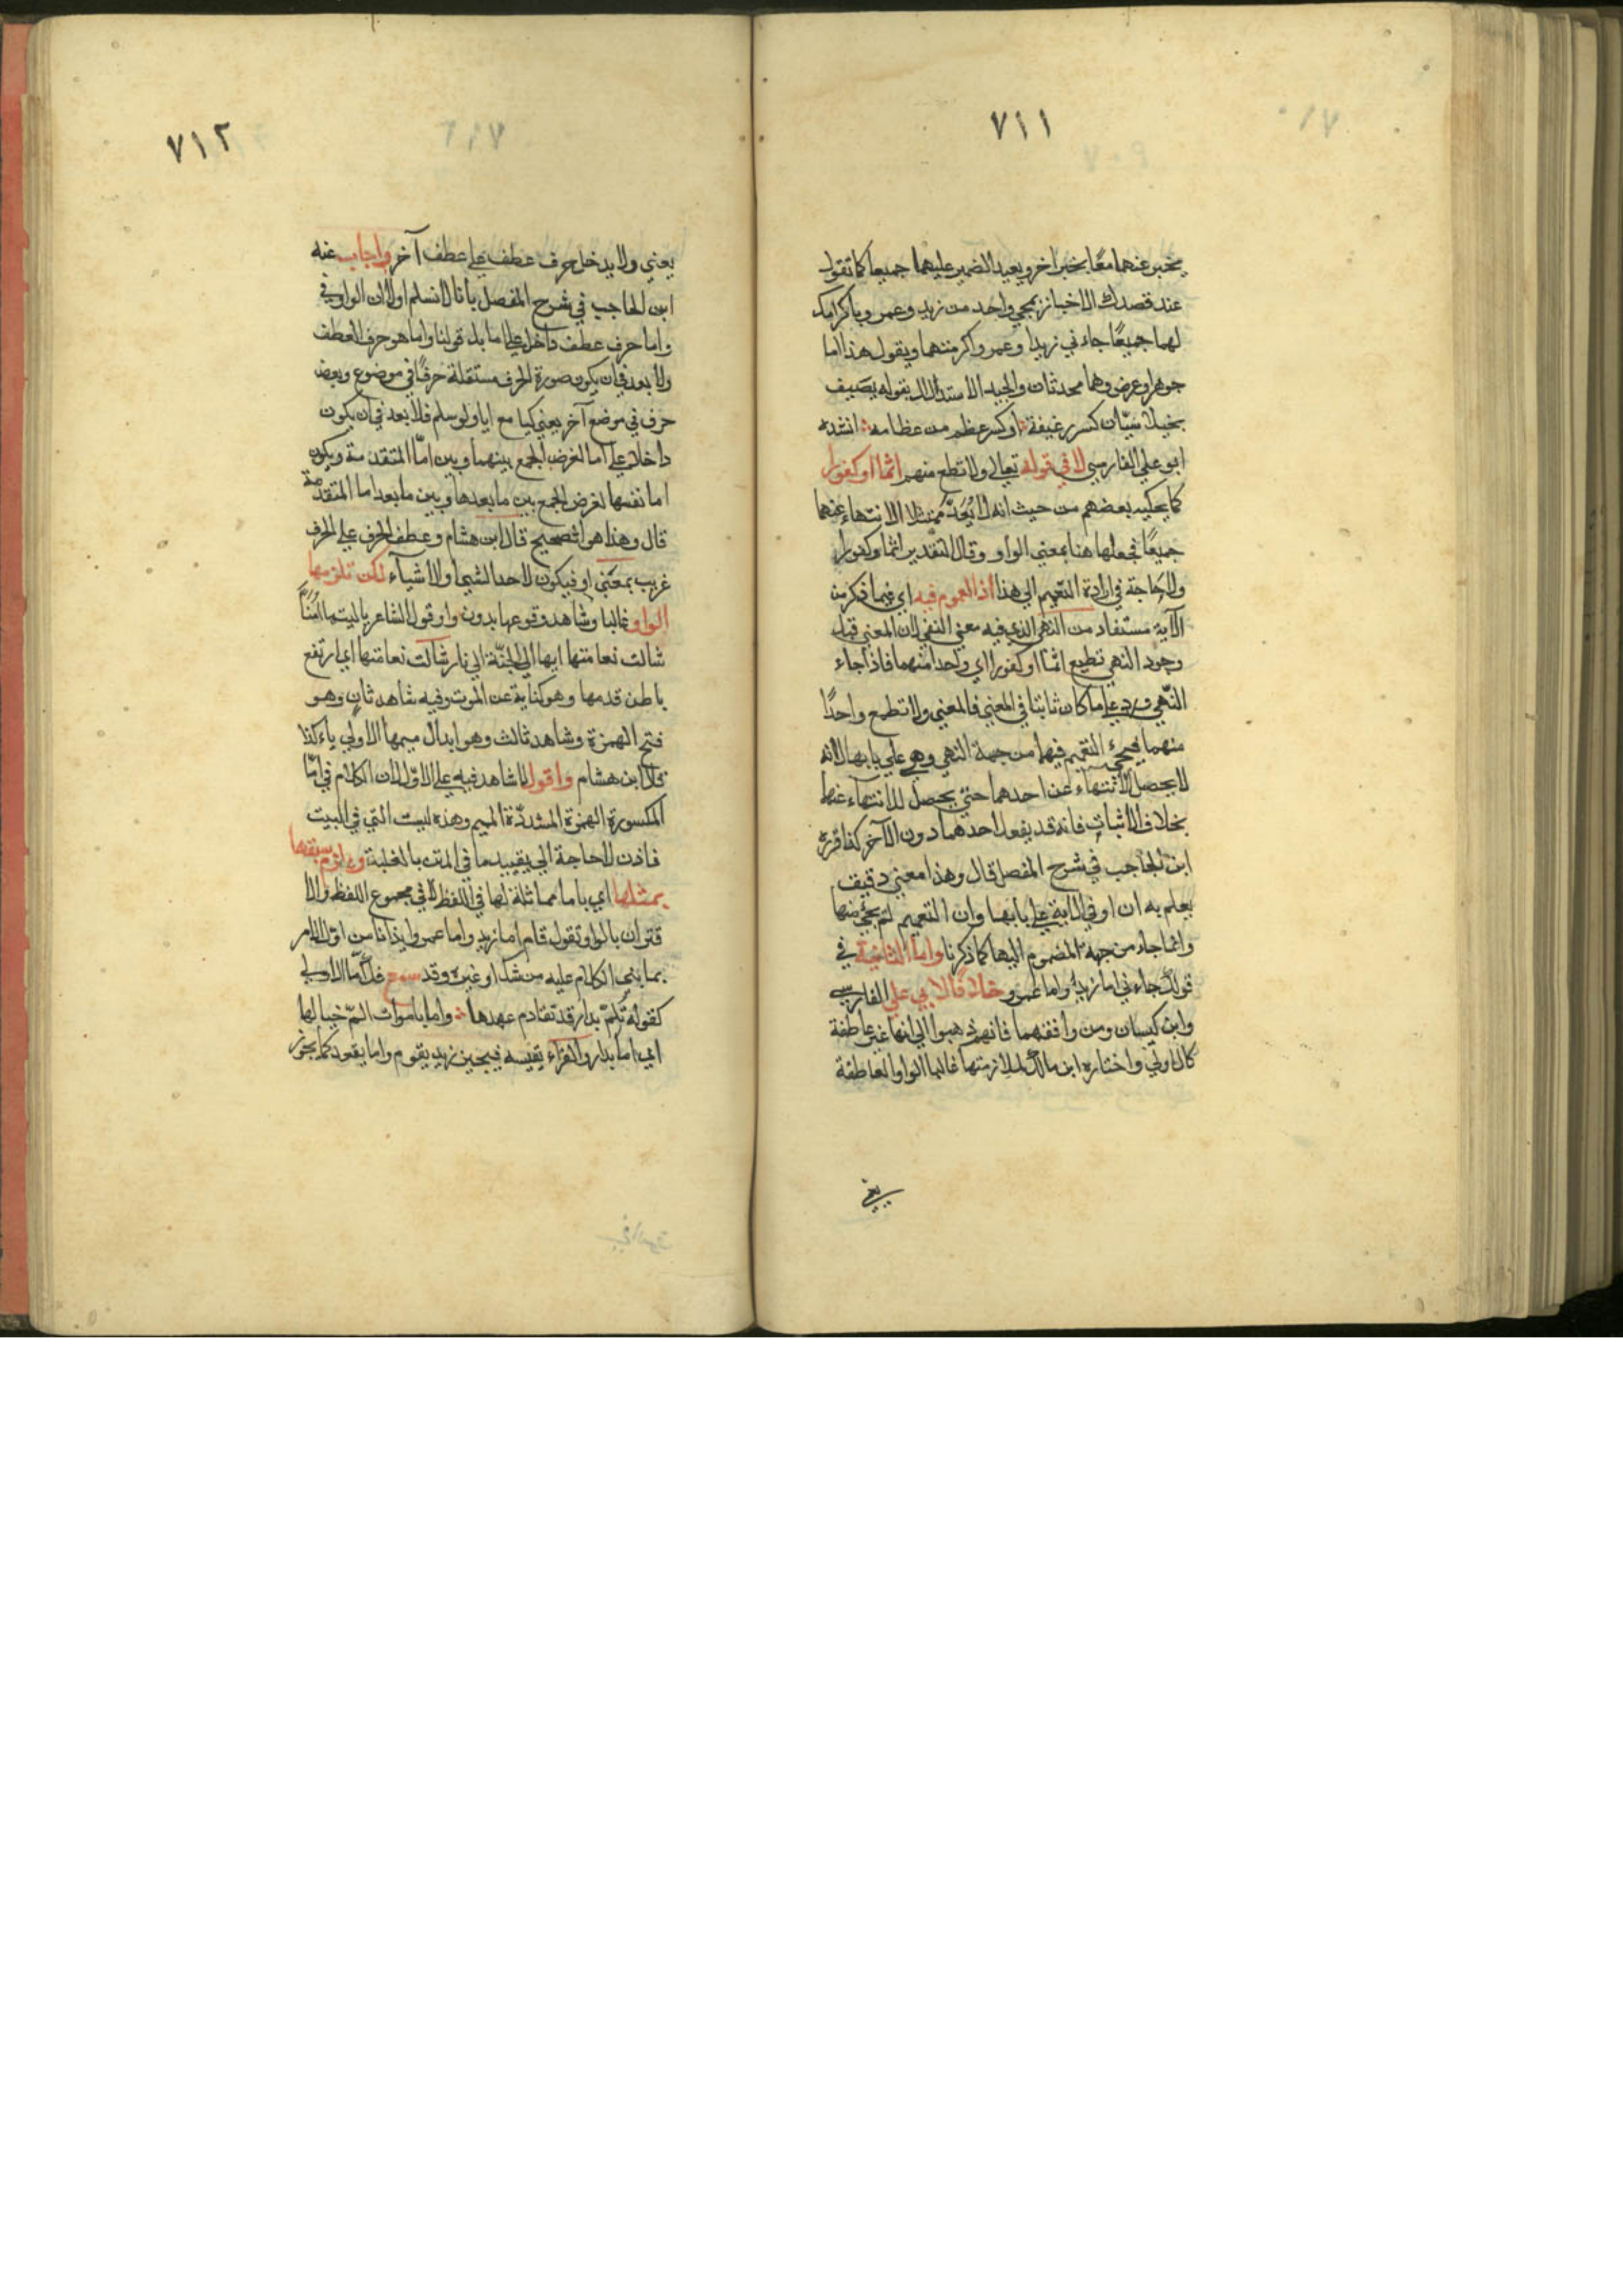 ٧١١
يخبر عنهما معًا بخبر اخر ويعيد الضمير عليهما جميعا كما تقول
عند قصدك الاخبار بمجي واحد من زيد وعمر وباكرامك
لهما جميعًا جاءني زيد او عمر واكرمتهما ويقول هذا اما
جوهر او عرض وهما محدثان والجيد الاستدلال بقوله يصيف
بخيلا سيّان كسر رغيفة او كسر عظم من عظامه انشده
ابو علي الفارسي لا في قوله تعالى ولا تطع منهم اثما او كفورا
كما يحكيه بعضهم من حيث انه لا يُعَدّ ممتثلا الا لانتهاء عنهما
جميعًا فجعلها هنا بمعني الواو وقال التقدير اثما وكفورا
ولا حاجة في ارادة التعميم الي هذا اذ العموم فيه اي فيما ذكر من
الآية مستفاد من النهي الذي فيه معني النفي لان المعني قبل
وجود النهي تطيع اثما او كفورا اي واحدا منهما فاذا جاء
النّهي ورد علي ما كان ثابتا في المعني فالمعني ولا تطع واحدًا
منهما فيجئ التعميم فيهما من جهة النهي وهي علي بابها لانه
لا يحصل الانتهاء عن احدهما حتي يحصل للانتهاء عنهما
بخلاف الاثبات فانه قد يفعل احدهما دون الآخر كذا قرره
ابن الحاجب في شرح المفصل قال وهذا معني دقيق
يعلم به ان او في الاية علي بابها وان التعميم لم يجئ منها
وانما جاء من جهة المضموم اليها كما ذكرنا واما الثانية في
قولك جاءني اما زيد واما عمرو خلافا لابي علي الفارسي
وابن كيسان ومن وافقهما فانهم ذهبوا الي انها غير عاطفة
كالاولي واختاره ابن مالك لملازمتها غالبا الواو العاطفة
يعني
٧١٢
يعني ولا يدخل حرف عطف علي عطف آخر واجاب عنه
ابن الحاجب في شرح المفصل بانا لا نسلم اولا ان الواو في
واما حرف عطف داخل علي اما بل قولنا واما هو حرف العطف
ولا بعد في ان يكون صورة الحرف مستقلة حرفًا في موضوع وبعض
حرف في موضع آخر يعني كيا مع ايا ولو سلم فلا بعد في ان يكون
داخلا علي اما لغرض الجمع بينهما وبين امّا المتقدمة ويكون
اما نفسها لغرض الجمع بين ما بعدها وبين ما بعد اما المتقدّمة
قال وهذا هو الصحيح قال ابن هشام وعطف الحرف علي الحرف
غريب بمعني او فيكون لاحد الشيا والاشيآء لكن تلزمها
الواو غالبا وشاهد وقوعها بدون واو قول الشاعر ياليتما امّنا
شالت نعامتها ايما الي الجنّة الي نار شالت نعامتها اي ارتفع
باطن قدمها وهو كناية عن الموت وفيه شاهد ثان وهو
فتح الهمزة وشاهد ثالث وهو ابدال ميمها الاولي ياء كذا
قال ابن هشام واقول لا شاهد فيه علي الاوّل لان الكلام في امّا
المكسورة الهمزة المشددّة الميم وهذه ليست التي في البيت
فاذن لا حاجة الي تقييد ما في المتن بالغلبة ويلزم سبقها
بمثلها اي باما مماثلة لها في اللفظ لا في مجموع اللفظ والا
قتران بالواو تقول قام اما زيد واما عمرو ايذانا من اوّل الامر
بما بني الكلام عليه من شك او غيره وقد سمع فك امّا الاولي
كقوله تُلمّ بدار قد تقادم عهدها واما باموات المّ خيالها
اي اما بدار والفرّاء يقيسه فيجيز زيد يقوم واما يقعد كما يجوز